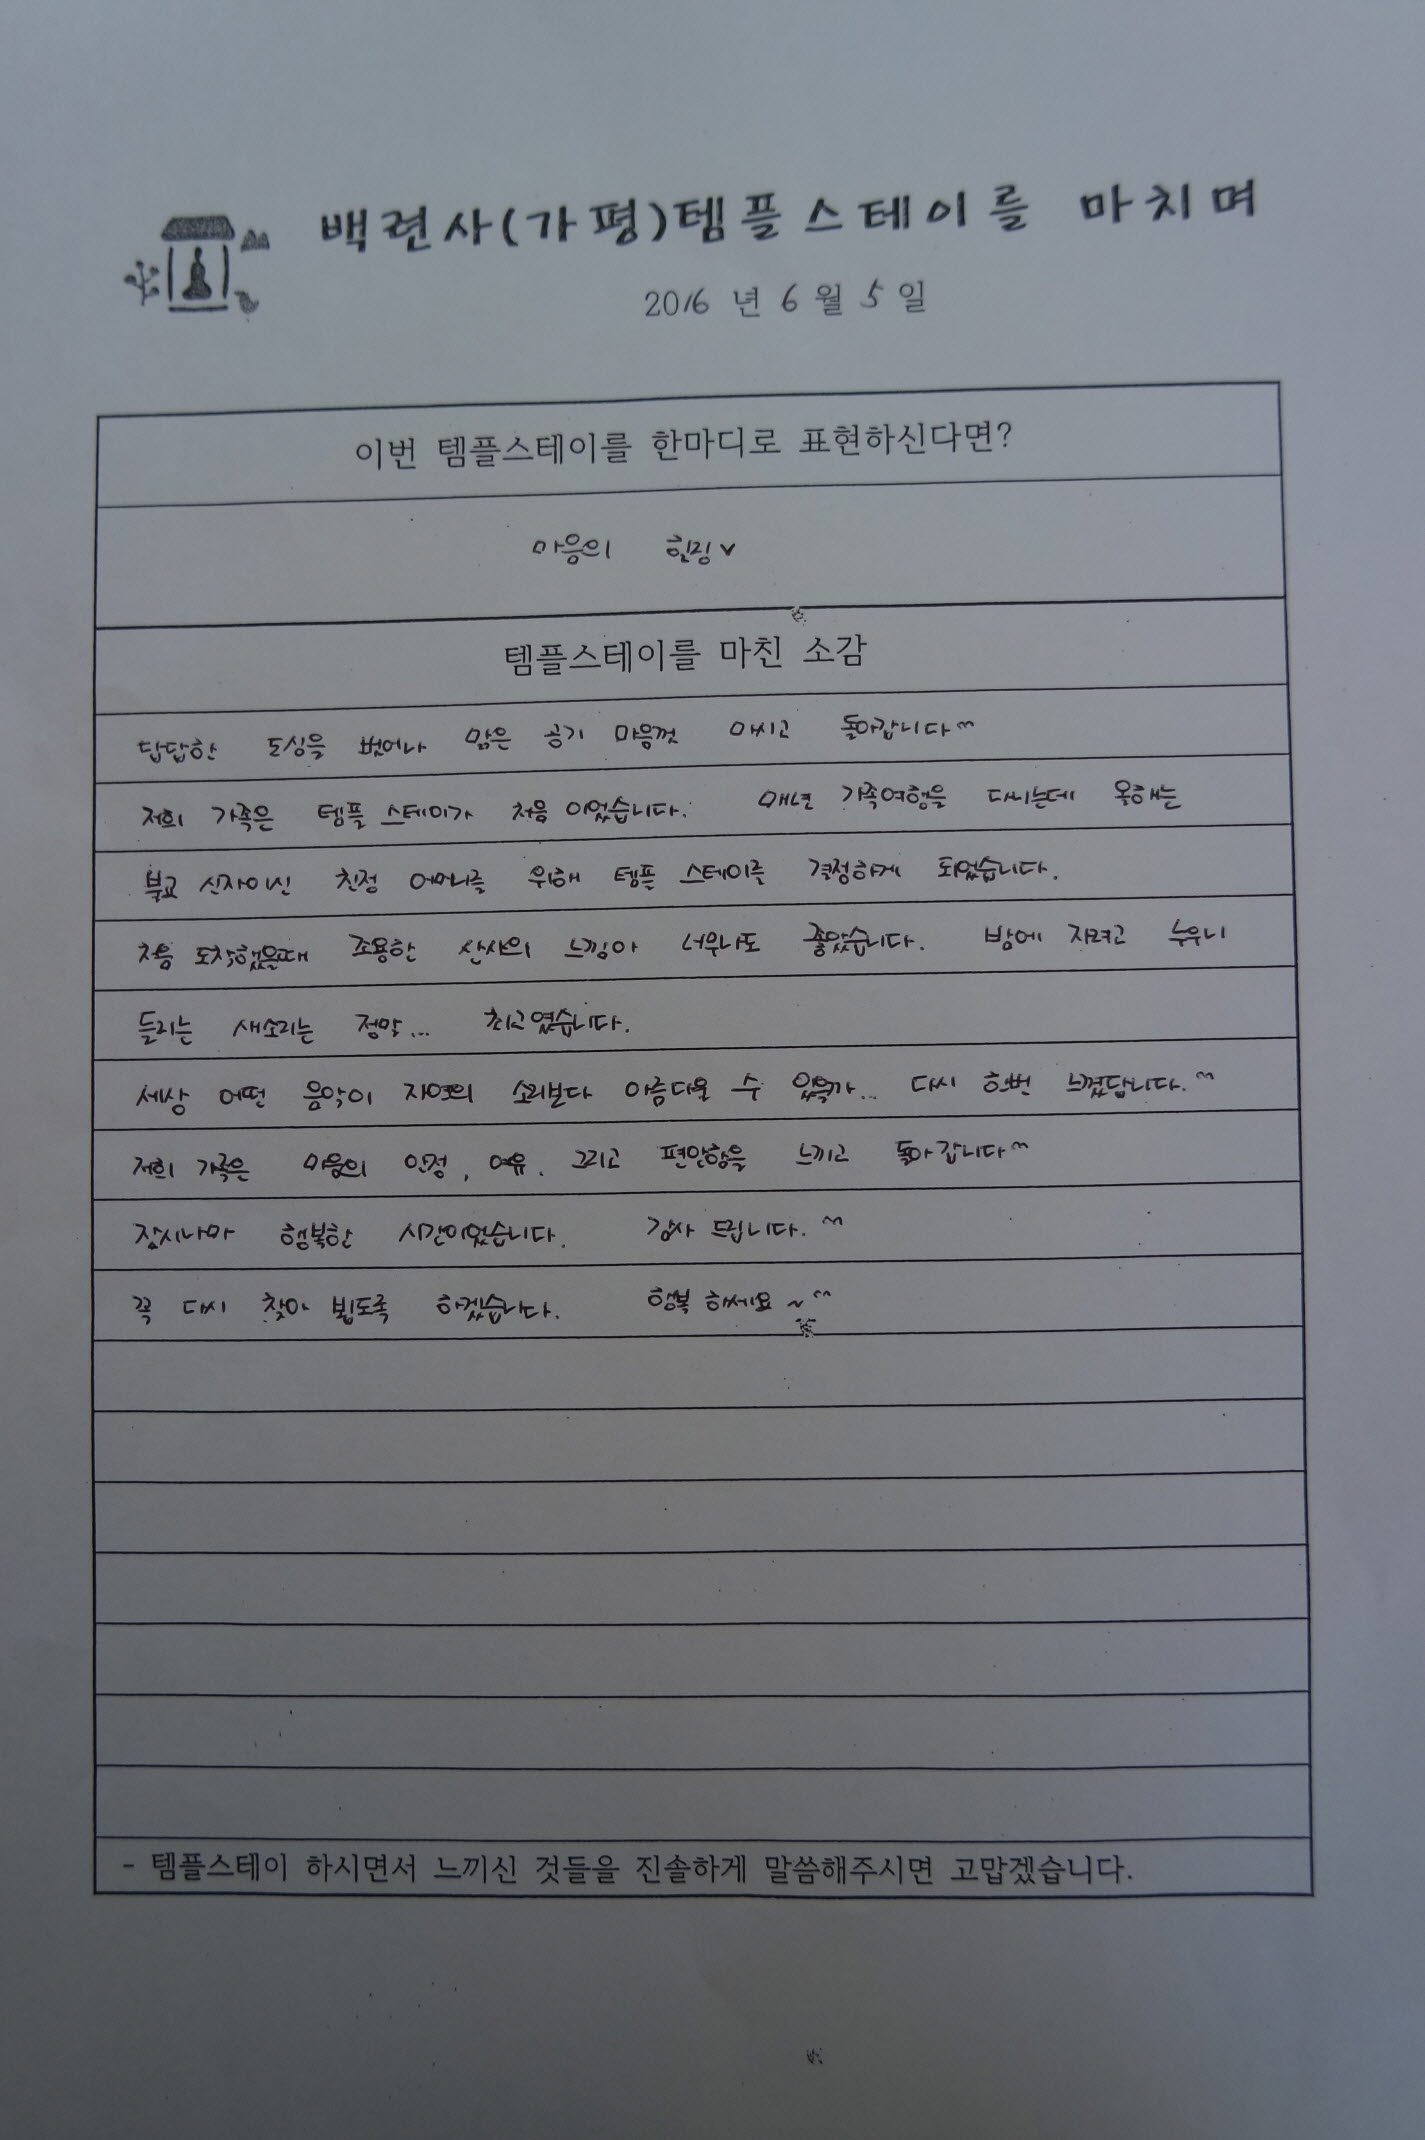 백련사(가평)템플스테이를 마치며
2016 년 6 월 5 일
이번 템플스테이를 한마디로 표현하신다면?
마음의 힐링
템플스테이를 마친 소감
답답한 도심을 벗어나 맑은 공기 마음껏 마시고 돌아갑니다^^
저희 가족은 템플 스테이가 처음 이었습니다. 매년 가족여행을 다니는데 올해는
불교 신자이신 친정 어머니를 위해 템플 스테이를 결정하게 되었습니다.
처음 도착했을때 조용한 산사의 느낌이 너무나도 좋았습니다. 밤에 자려고 누우니
들리는 새소리는 정말... 최고였습니다.
세상 어떤 음악이 자연의 소리보다 아름다울 수 있을까... 다시 한번 느꼈답니다.^^
저희 가족은 마음의 안정, 여유, 그리고 편안함을 느끼고 돌아갑니다^^
잠시나마 행복한 시간이었습니다. 감사 드립니다.^^
꼭 다시 찾아 뵙도록 하겠습니다. 행복 하세요~^^
- 템플스테이 하시면서 느끼신 것들을 진솔하게 말씀해주시면 고맙겠습니다.